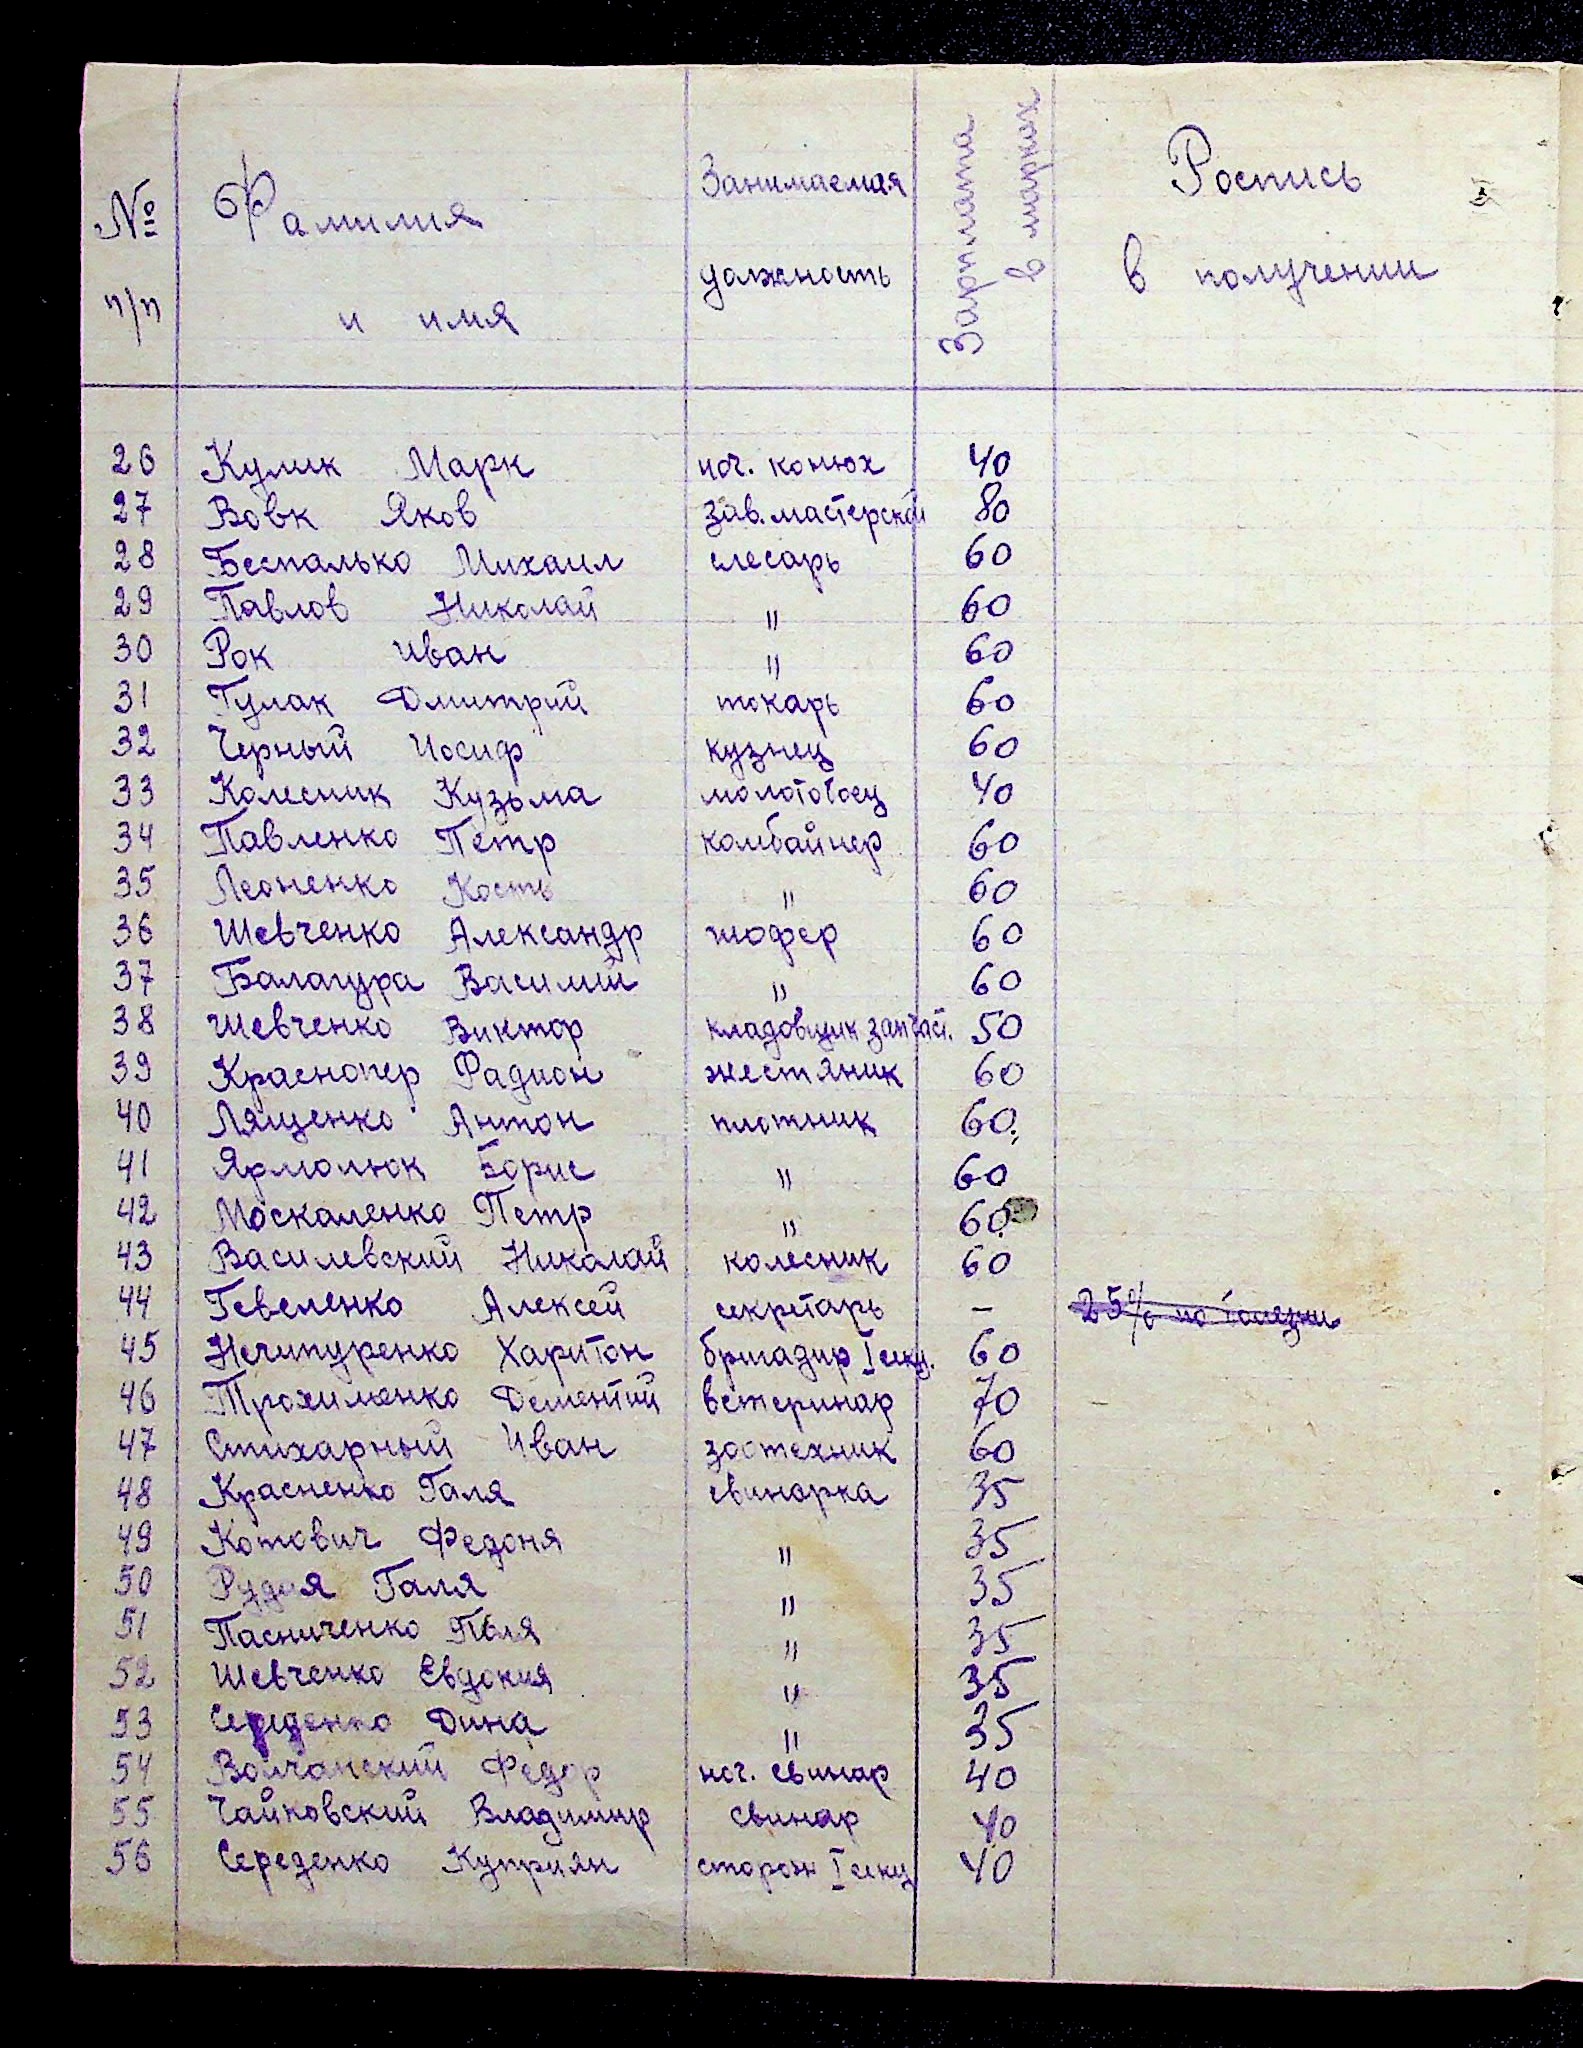 № п/п Фамилия и имя Занимаемая должность Зарплата в марках Роспись в получении
26 Кулик Марк ноч. конюх 40
27 Вовк Яков зав. мастерской 80
28 Беспалько Михаил слесарь 60
29 Павлов Николай " 60
30 Рок Иван " 60
31 Гулак Дмитрий токарь 60
32 Черный Иосиф кузнец 60
33 Колесник Кузьма молотобоец 40
34 Павленко Петр комбайнер 60
35 Леоненко Кость " 60
36 Шевченко Александр шофер 60
37 Балагура Василий " 60
38 Шевченко Виктор кладовщик запчаст. 50
39 Красножер Радион жестяник 60
40 Лященко Антон плотник 60
41 Ярмолюк Борис " 60
42 Москаленко Петр " 60
43 Василевский Николай колесник 60
44 Гевеленко Алексей секретарь – 25% по болезни
45 Нечипуренко Харитон бригадир I секц. 60
46 Трохименко Дементий ветеринар 70
47 Стихарный Иван зоотехник 60
48 Красненко Галя свинарка 35
49 Котович Федоня " 35
50 Рудая Галя " 35
51 Пасниченко Поля " 35
52 Шевченко Евдокия " 35
53 Середенко Дина " 35
54 Волчанский Федор ноч. свинар 40
55 Чайковский Владимир свинар 40
56 Середенко Куприян сторож I секц 40